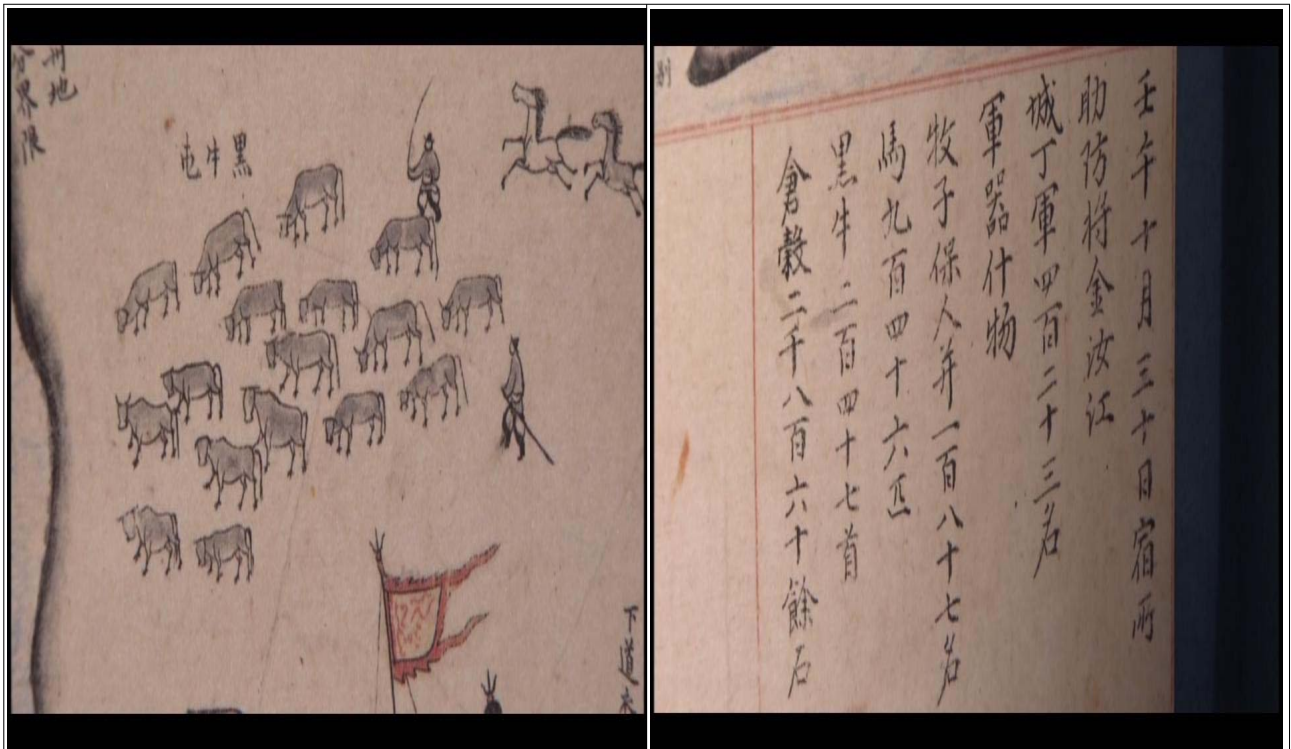 州地
界限
黑牛屯
下道
壬午十月三十日宿所
助防將金汝江
城丁軍四百二十三名
軍器什物
牧子保人并一百八十七名
馬九百四十六匹
黑牛二百四十七首
倉穀二千八百六十餘石